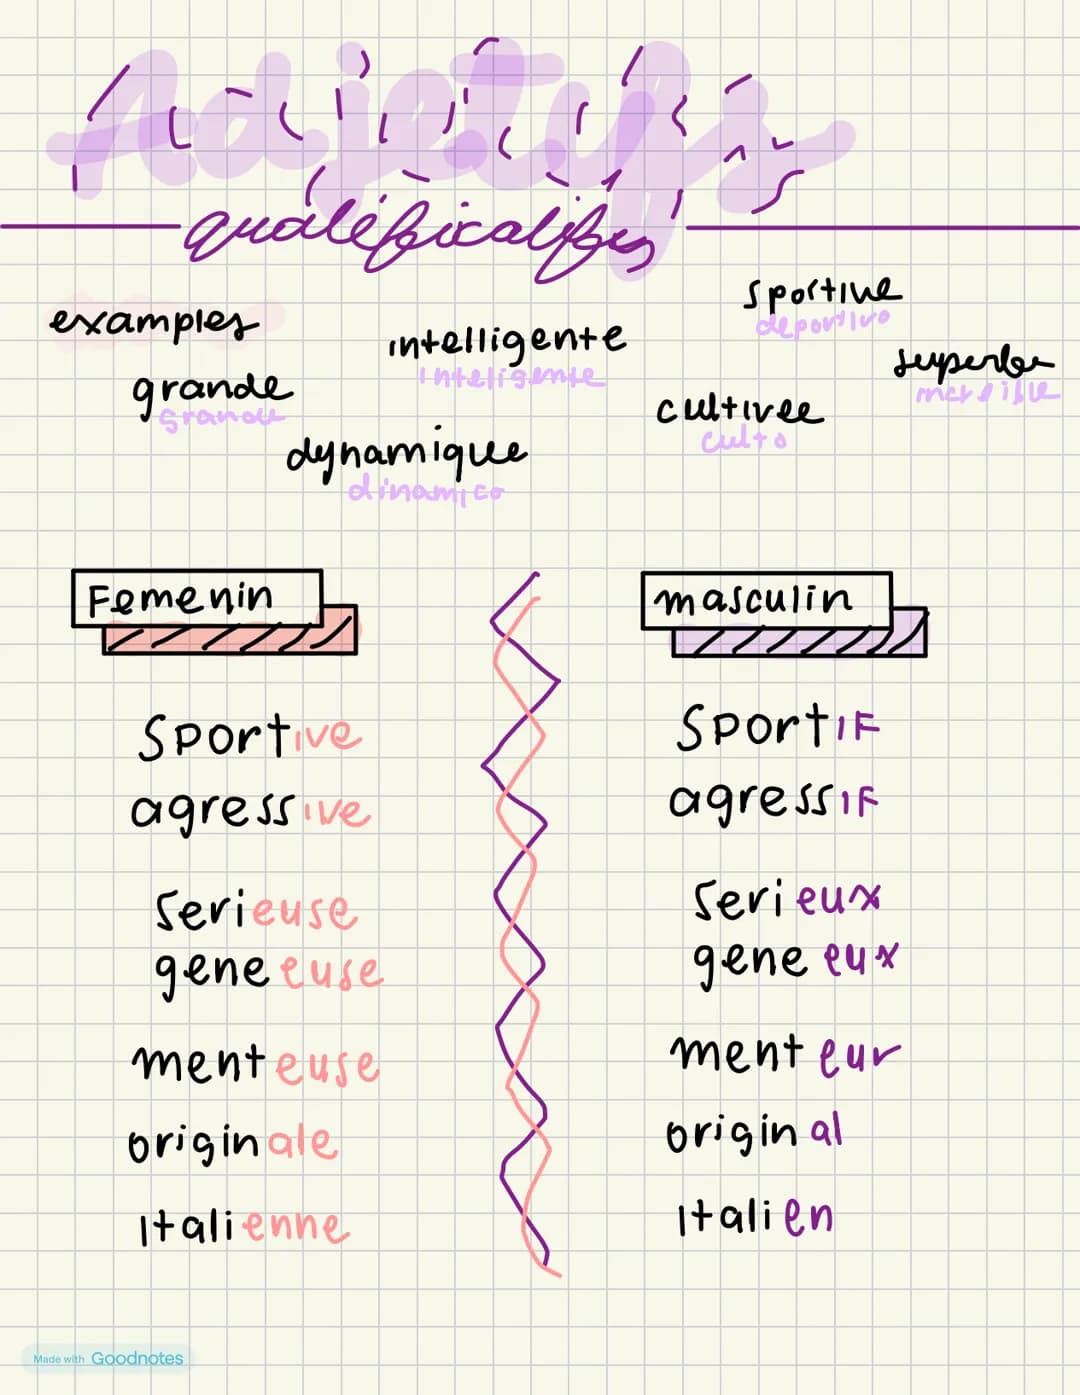 Adjetifs
qualificatifs
examples
grande
grande
intelligente
inteligente
dynamique
dinamico
sportive
deportivo
cultivee
culto
superbe
Femenin
masculin
sportive
sportiF
agressive
agressiF
serieuse
serieux
geneeuse
geneeux
menteuse
menteur
originale
original
italienne
italien
Made with Goodnotes